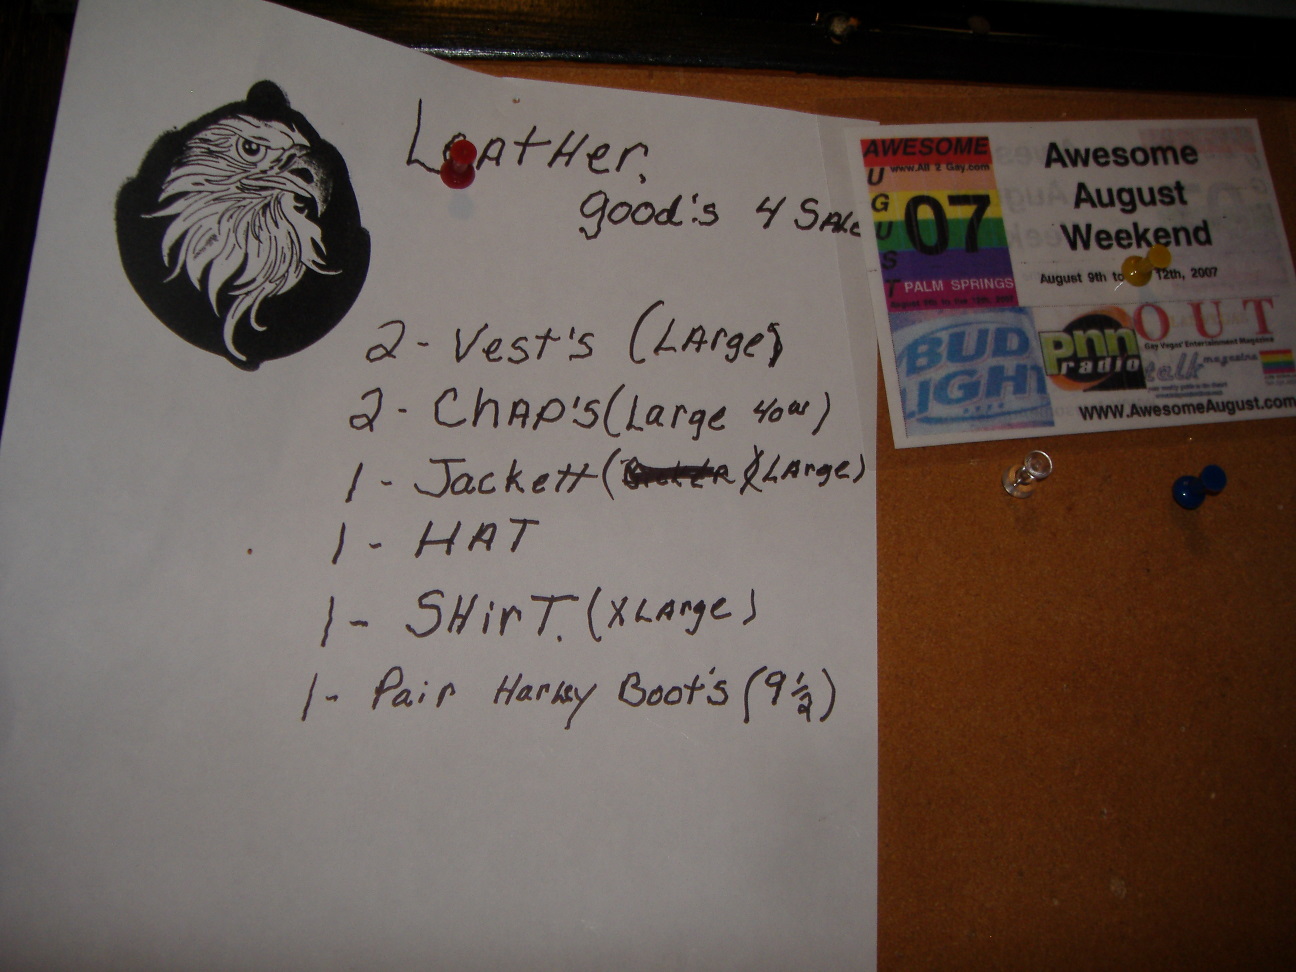 Leather.
good's 4 SALe
2 - Vest's (LArge)
2 - CHAP'S (Large
1 - Jackett ( XLArge)
1 - HAT
1 - SHirT. (XLArge)
1 - Pair Harley Boot's (9 1/2)
AWESOME
www.All 2 Gay.com
UGUST
07
PALM SPRINGS
Awesome
August
Weekend
August 9th to 12th, 2007
BUD
LIGHT
pnn
radio
OUT
Gay Vegas' Entertainment Magazine
talk magazine
www.AwesomeAugust.com